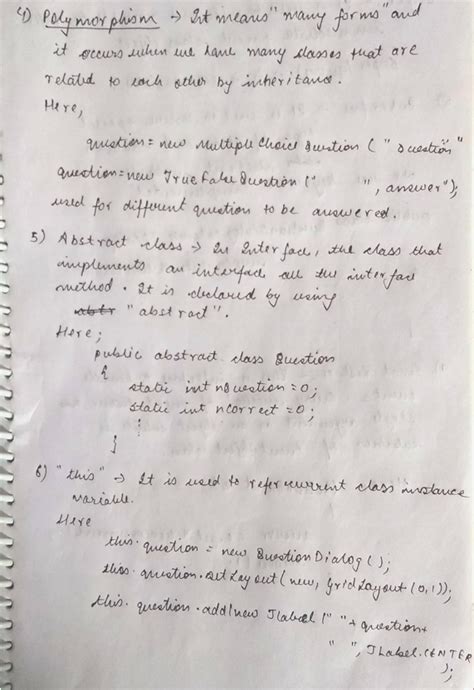 4) Polymorphism → It means "many forms" and
it occurs when we have many classes that are
related to each other by inheritance.
Here,
question = new Multiple Choice Question ( " Question"
question = new True False Question (" ", answer");
used for different question to be answered.
5) Abstract class → In Interface, the class that
implements an interface all the interface
method. It is declared by using
"abstract".
Here;
public abstract class Question
{
static int nQuestion = 0;
static int ncorrect = 0;
}
6) "this" → It is used to refer current class instance
variable.
Here
this. question = new Question Dialog ( );
this. question. set Layout (new, grid Layout (0,1));
this. question. add(new JLabel (" " + question+
" ", JLabel.CENTER
);